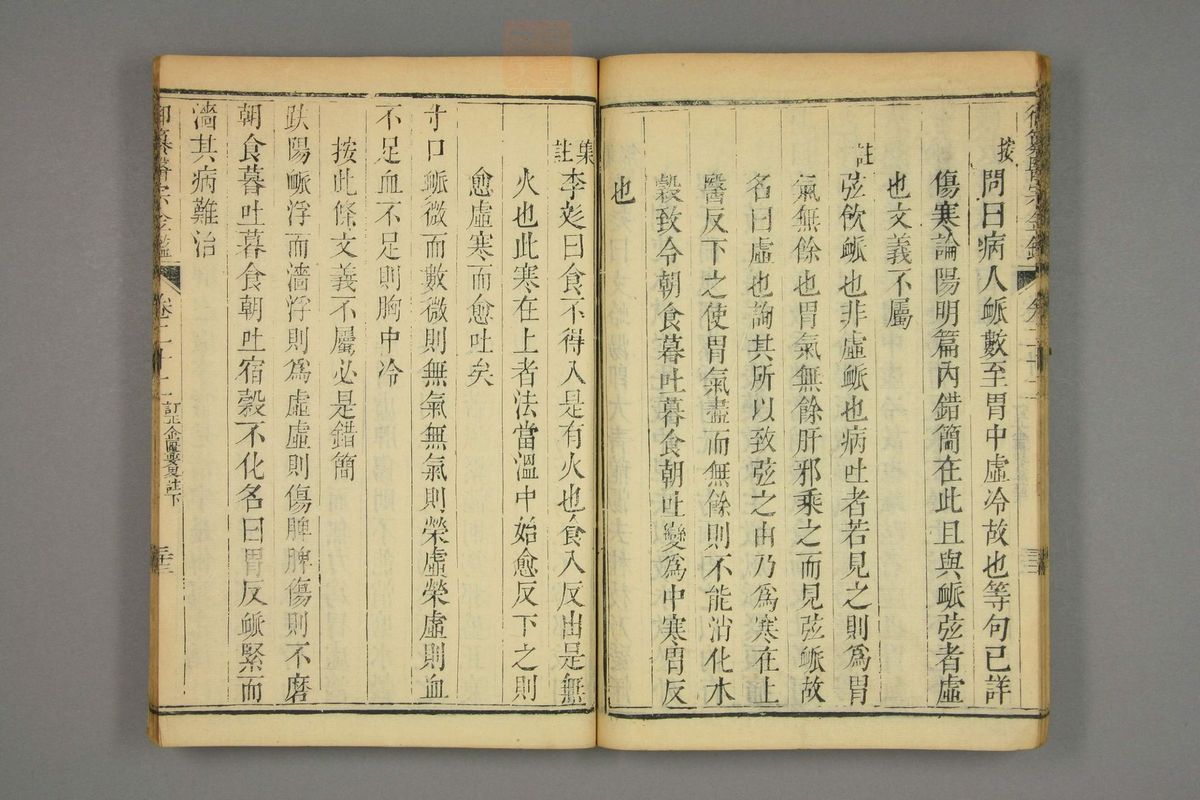 按
問曰病人脈數至胃中虛冷故也等句已詳
傷寒論陽明篇內錯簡在此且與脈弦者虛
也文義不屬
註
弦飲脈也非虛脈也病吐者若見之則為胃
氣無餘也胃氣無餘肝邪乘之而見弦脈故
名曰虛也詢其所以致弦之由乃為寒在上
醫反下之使胃氣盡而無餘則不能消化水
穀致令朝食暮吐暮食朝吐變為中寒胃反
也
集註
李彣曰食不得入是有火也食入反出是無
火也此寒在上者法當溫中始愈反下之則
愈虛寒而愈吐矣
寸口脈微而數微則無氣無氣則榮虛榮虛則血
不足血不足則胸中冷
按此條文義不屬必是錯簡
趺陽脈浮而濇浮則為虛虛則傷脾脾傷則不磨
朝食暮吐暮食朝吐宿穀不化名曰胃反脈緊而
濇其病難治
御纂醫宗金鑑
卷二十二
訂正金匱要畧註下
三三